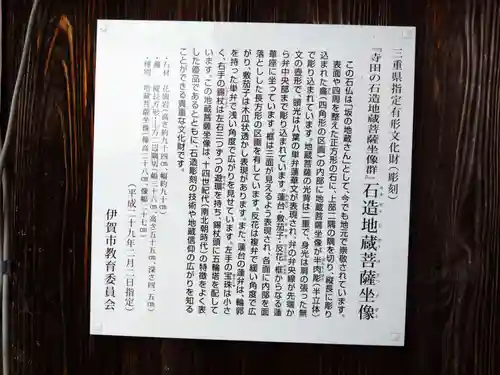 三重県指定有形文化財（彫刻）
『寺田の石造地蔵菩薩坐像群』石造地蔵菩薩坐像
この石仏は「坂の地蔵さん」として、今でも地元で崇敬されています。
表面や四周を整えた正方形の石に、上部二隅の隅を切り、縦長に彫り
込まれた龕（四角形の区画）の内部に地蔵菩薩坐像が半肉彫（半立体）
で彫り込まれています。地蔵菩薩の光背は二重で、身光は肩の張った無
文の壺形で、頭光は八葉の単弁蓮華文が表現され、弁の弁央線が先端か
ら弁中央部まで彫り込まれています。蓮台・敷茄子・反花・框からなる蓮
華座に坐っています。框は三面が見えるよう表現され、各面に内部を面
落としした長方形の区画を有しています。反花は複弁で緩い角度で広
がり、敷茄子は木瓜状透かし表現があります。また、蓮台の蓮弁は、輪郭
を持った単弁で浅い角度で広がりを見せています。左手の宝珠は小さ
く、右手の錫杖は左右三つずつの遊環を持ち、錫杖頭に五輪塔を配して
います。この地蔵菩薩坐像は、十四世紀代（南北朝時代）の特徴をよく表
した優品であるとともに、石造彫刻の技術や地蔵信仰の広がりを知る
ことができる貴重な文化財です。
・石材　花崗岩（高さ約九十四㎝、幅約九十㎝）
・龕　縦長方形・上方二辺隅切（幅三十八㎝、高さ五十五㎝、深さ四．五㎝）
・種別　地蔵菩薩坐像（像高二十八㎝、像幅二十七㎝）
（平成二十九年二月二日指定）
伊賀市教育委員会